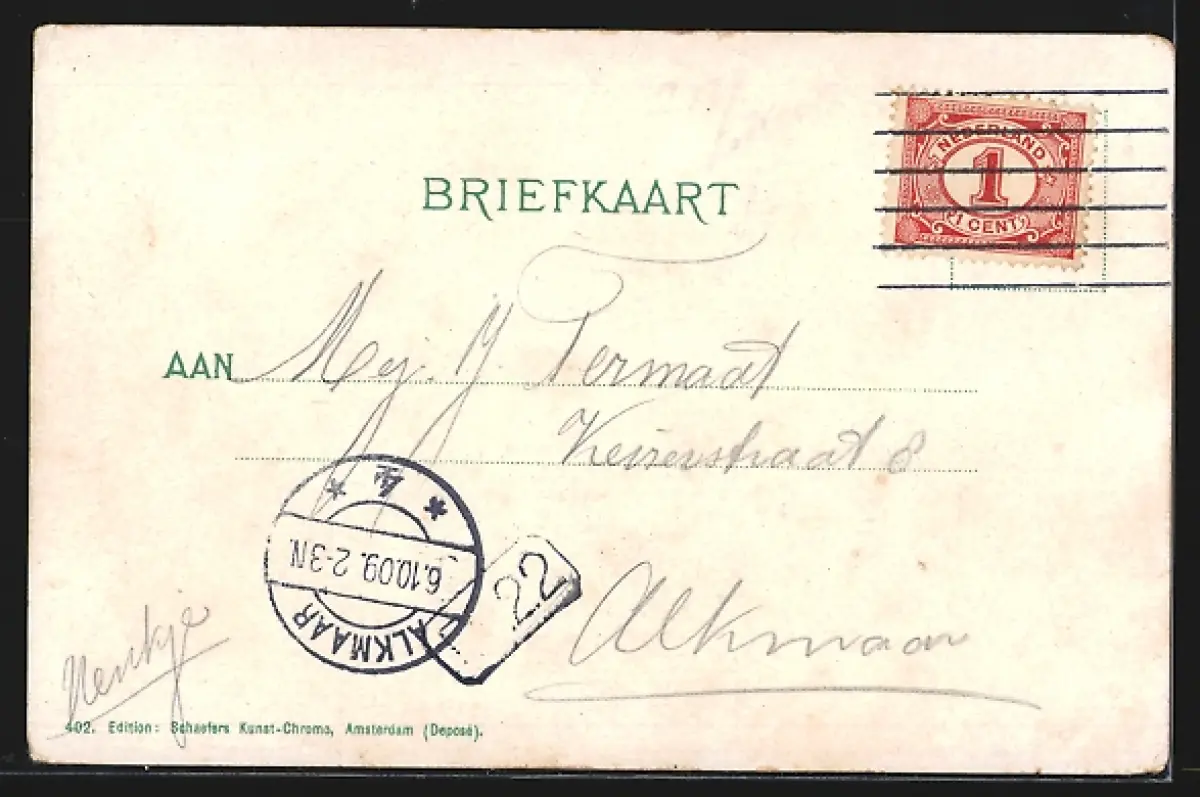 BRIEFKAART
NEDERLAND
1
1 CENT
AAN Mej. J. Termaat
8
4
6.10.09. 2-3N.
ALKMAAR
22
Alkmaar
402. Edition: Schaefers Kunst-Chromo, Amsterdam (Deposé).